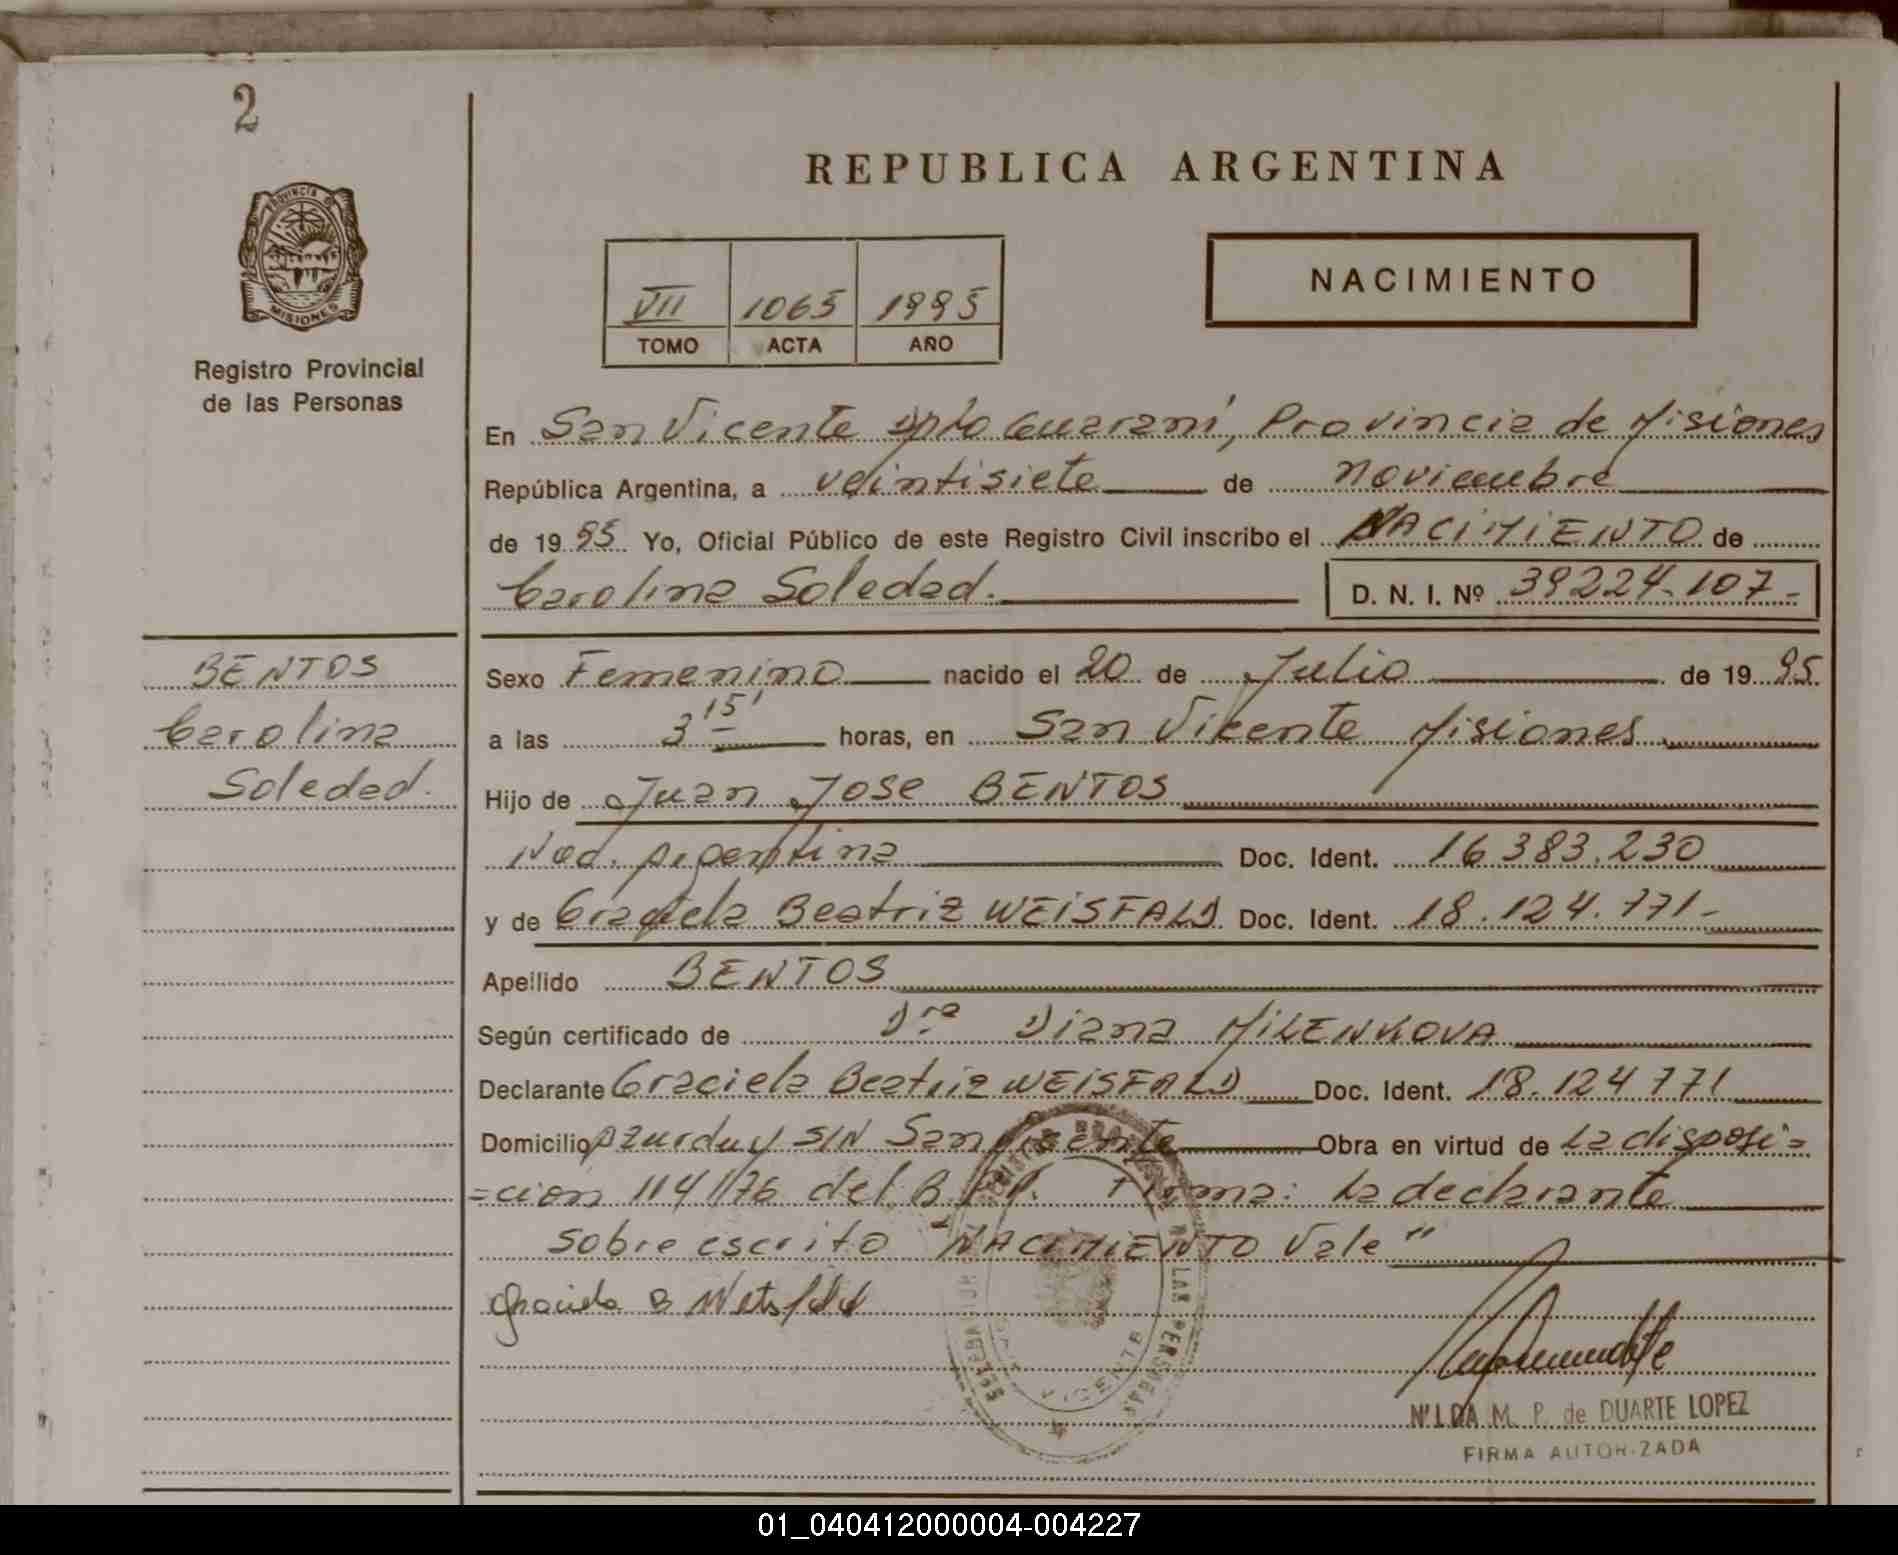 2
PROVINCIA DE
MISIONES
Registro Provincial
de las Personas
REPUBLICA ARGENTINA
VII 1065 1995
TOMO ACTA AÑO
NACIMIENTO
En San Vicente Dpto Guaraní, Provincia de Misiones
República Argentina, a veintisiete de noviembre
de 1995 Yo, Oficial Público de este Registro Civil inscribo el NACIMIENTO de
Carolina Soledad. D. N. I. Nº 39224.107-
BENTOS
Carolina
Soledad.
Sexo Femenino nacido el 20 de Julio de 1995
a las 3 15' horas, en San Vicente Misiones
Hijo de Juan Jose BENTOS
Nac. Argentina Doc. Ident. 16.383.230
y de Graciela Beatriz WEISFALD Doc. Ident. 18.124.771-
Apellido BENTOS
Según certificado de Dra Diana MILENKOVA
Declarante Graciela Beatriz WEISFALD Doc. Ident. 18.124771
Domicilio Azurduy S/N San Vicente Obra en virtud de La disposi=
=cion 114/76 del Firma: La declarante
Sobre escrito "NACIMIENTO Vale"
VICENTE
LAS PERSONAS
NILDA M. P. de DUARTE LOPEZ
FIRMA AUTORIZADA
01_040412000004-004227